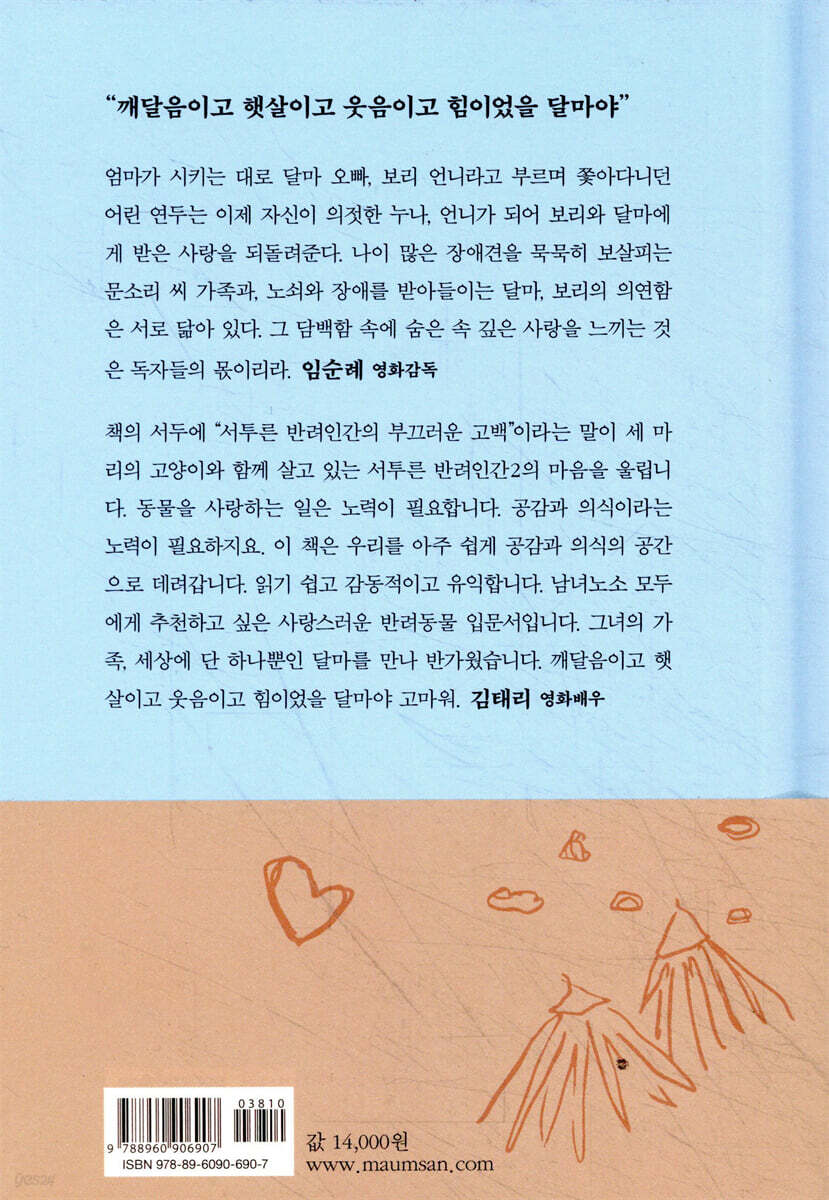 “깨달음이고 햇살이고 웃음이고 힘이었을 달마야”
엄마가 시키는 대로 달마 오빠, 보리 언니라고 부르며 쫓아다니던
어린 연두는 이제 자신이 의젓한 누나, 언니가 되어 보리와 달마에
게 받은 사랑을 되돌려준다. 나이 많은 장애견을 묵묵히 보살피는
문소리 씨 가족과, 노쇠와 장애를 받아들이는 달마, 보리의 의연함
은 서로 닮아 있다. 그 담백함 속에 숨은 속 깊은 사랑을 느끼는 것
은 독자들의 몫이리라. 임순례 영화감독
책의 서두에 “서투른 반려인간의 부끄러운 고백”이라는 말이 세 마
리의 고양이와 함께 살고 있는 서투른 반려인간2의 마음을 울립니
다. 동물을 사랑하는 일은 노력이 필요합니다. 공감과 의식이라는
노력이 필요하지요. 이 책은 우리를 아주 쉽게 공감과 의식의 공간
으로 데려갑니다. 읽기 쉽고 감동적이고 유익합니다. 남녀노소 모두
에게 추천하고 싶은 사랑스러운 반려동물 입문서입니다. 그녀의 가
족, 세상에 단 하나뿐인 달마를 만나 반가웠습니다. 깨달음이고 햇
살이고 웃음이고 힘이었을 달마야 고마워. 김태리 영화배우
03810
9 788960 906907
ISBN 978-89-6090-690-7
값 14,000원
www.maumsan.com
yes24